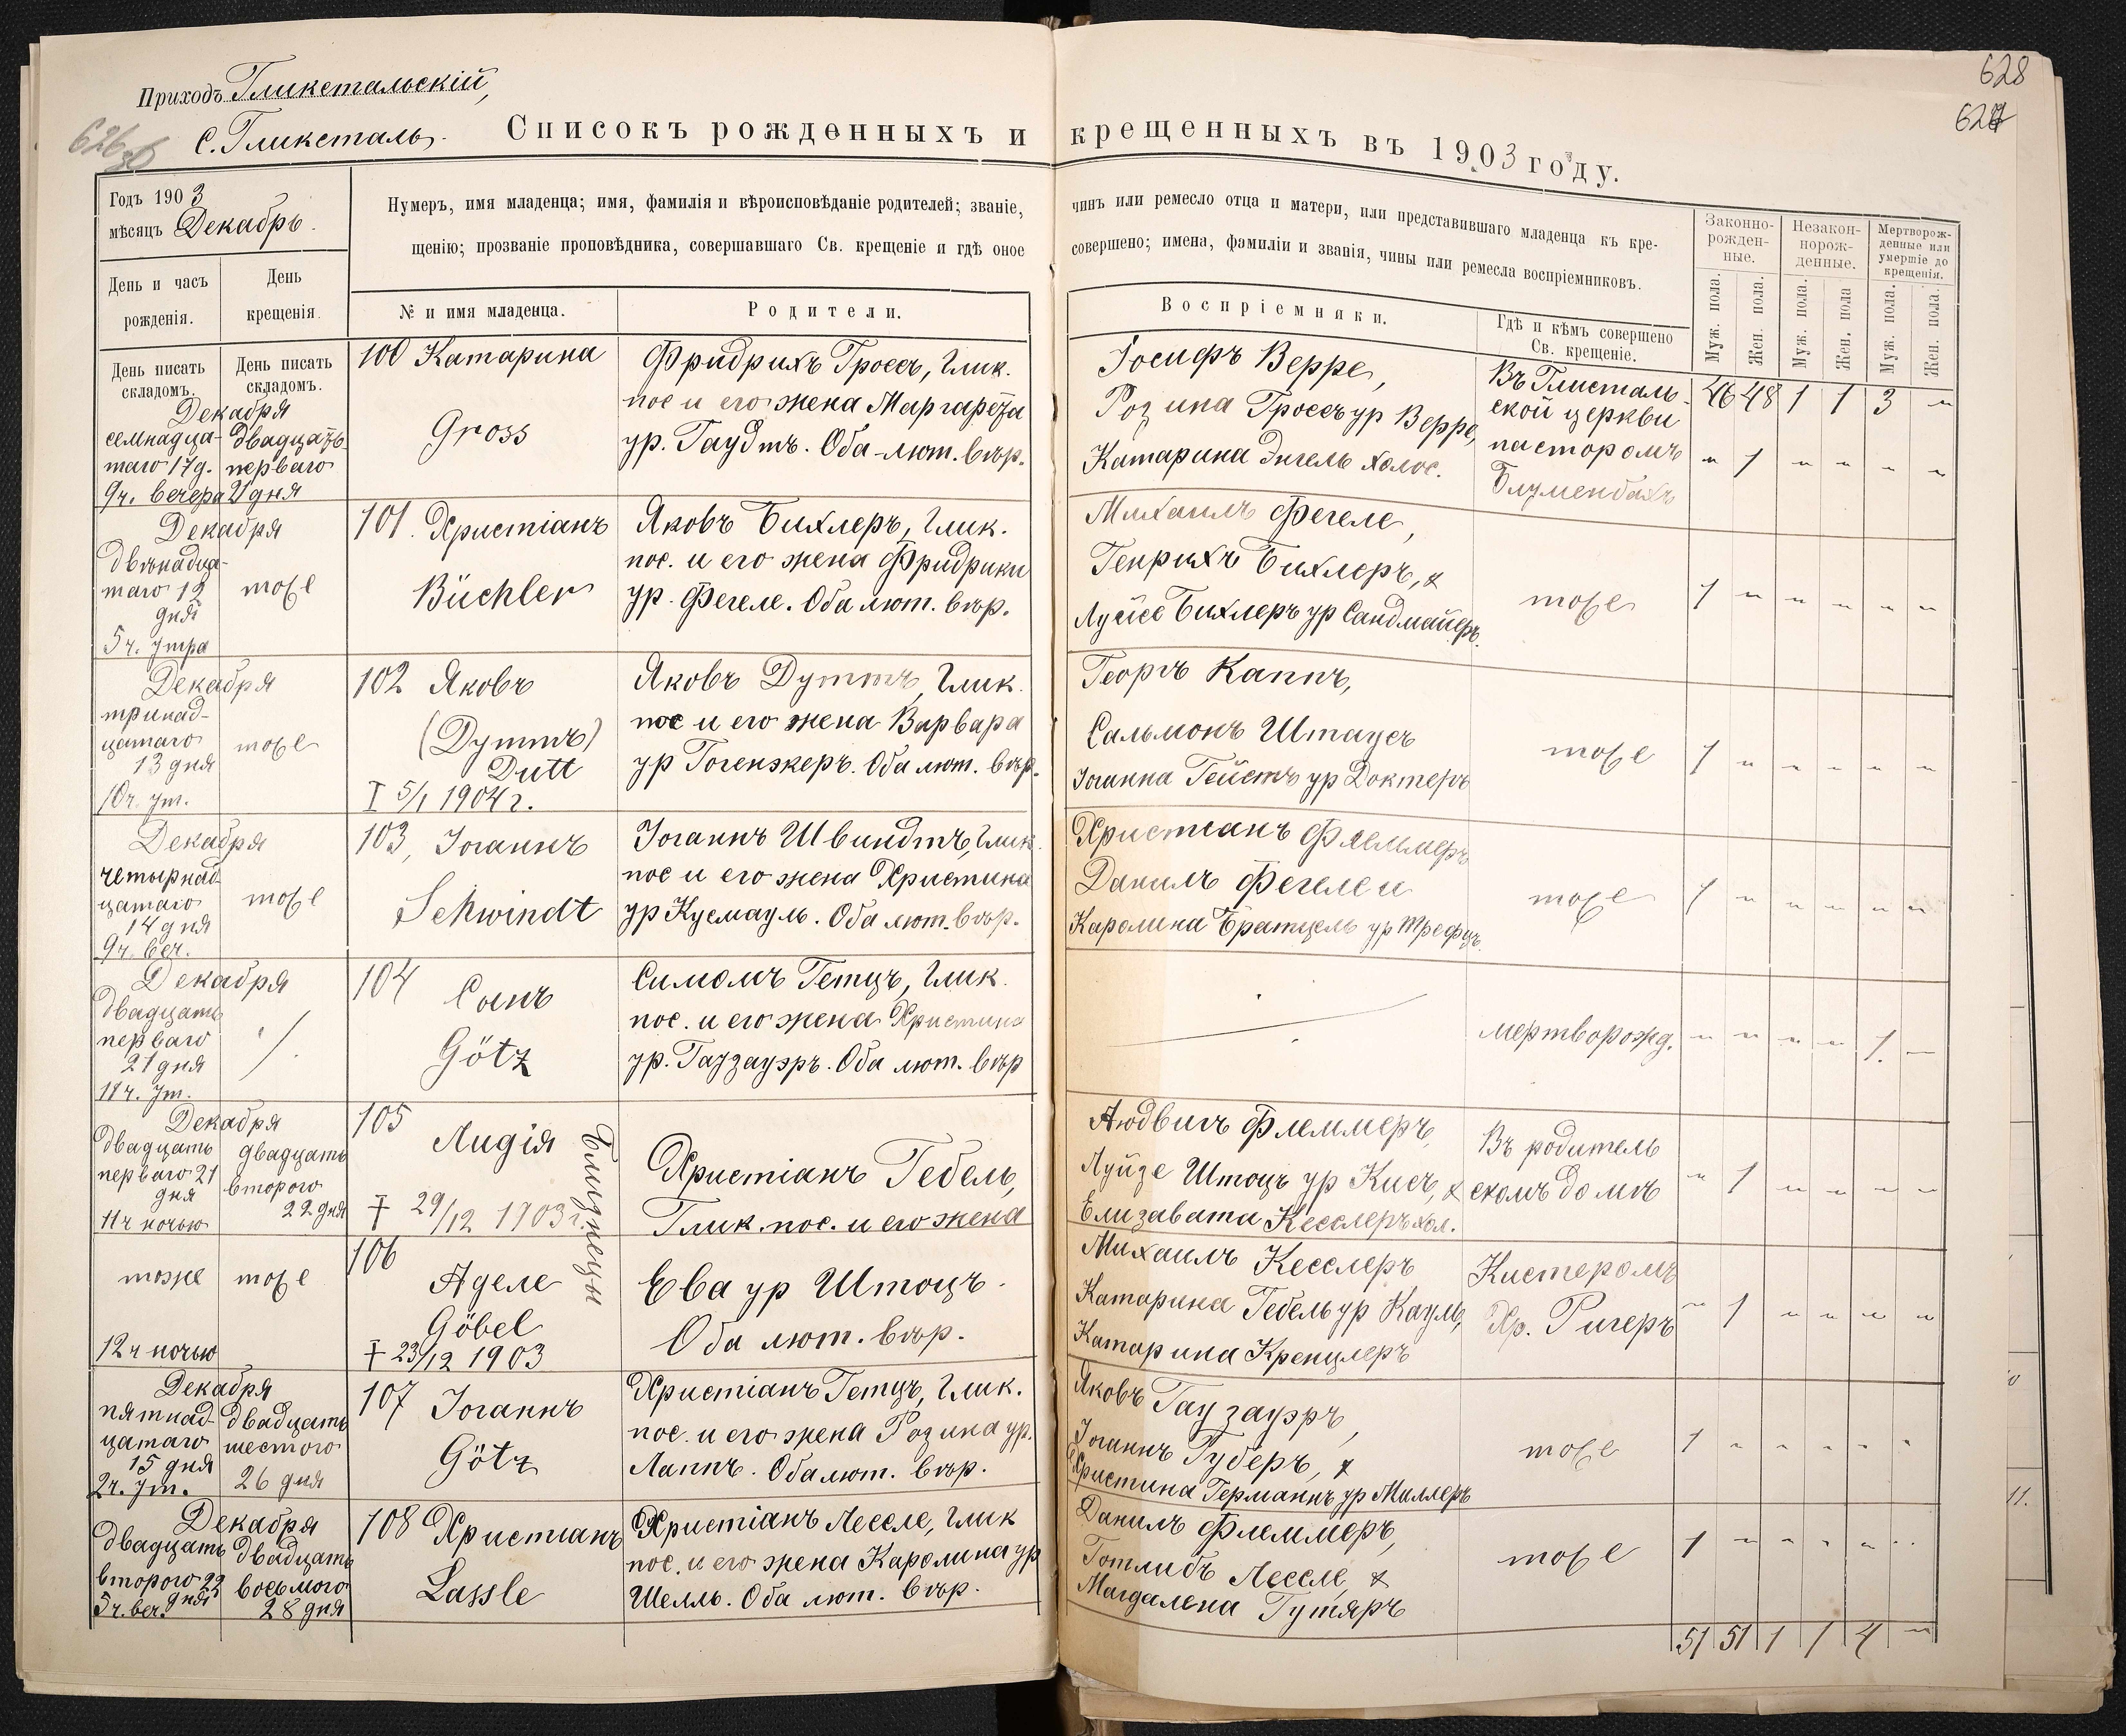 Приходъ Гликстальскій,
С. Гликсталь.
628
Списокъ рожденныхъ и крещенныхъ въ 1903 году.
Годъ 1903
мѣсяцъ Декабрь.
Нумеръ, имя младенца; имя, фамилія и вѣроисповѣданіе родителей; званіе, чинъ или ремесло отца и матери, или представившаго младенца къ кре-
щенію; прозваніе проповѣдника, совершавшаго Св. крещеніе и гдѣ оное совершено; имена, фамиліи и званія, чины или ремесла воспріемниковъ.
Законно-
рожден-
ные.
Незакон-
норож-
денные.
Мертворож-
денные или
умершіе до
крещенія.
День и часъ
рожденія.
День
крещенія.
№ и имя младенца.
Родители.
Воспріемники.
Гдѣ и кѣмъ совершено
Св. крещеніе.
Муж. пола.
Жен. пола.
Муж. пола.
Жен. пола
Муж. пола.
Жен. пола.
День писать
складомъ.
День писать
складомъ.
46 48 1 1 3 "
Декабря
семнадца-
таго 17 д.
9 ч. вечера
двадцать
перваго
21 дня
100 Катарина
Gross
Фридрихъ Гроссъ, Глик.
пос и его жена Маргарета
ур. Гаудтъ. Оба лют. вѣр.
Іосифъ Верре,
Розина Гроссъ ур Верре,
Катарина Энгель холос.
Въ Глисталь-
ской церкви
пасторомъ
Блуменбахъ
" 1 " " " "
Декабря
двѣнадца-
таго 12
дня
5 ч. утра
тоже
101. Христіанъ
Büchler
Яковъ Бихлеръ, Глик.
пос. и его жена Фридрики
ур. Фегеле. Оба лют. вѣр.
Михаилъ Фегеле,
Генрихъ Бихлеръ, &
Луйсе Бихлеръ ур Сандмайеръ.
тоже
1 " " " " "
Декабря
тринад-
цатаго
13 дня
10 ч. ут.
тоже
102 Яковъ
(Дуттъ)
Dutt
† 5/1 1904 г.
Яковъ Дуттъ, Глик.
пос и его жена Варвара
ур Гогенэкеръ. Оба лют. вѣр.
Георгъ Каппъ,
Сальмонъ Штаусъ
Іоганна Гейстъ ур Доктеръ
тоже
1 " " " " "
Декабря
четырнад-
цатаго
14 дня
9 ч. веч.
тоже
103, Іоганнъ
Schwindt
Іоганнъ Швиндтъ, Глик.
пос и его жена Христина
ур Кусмауль. Оба лют. вѣр.
Христіанъ Флеммеръ
Данилъ Фегеле и
Каролина Братцель ур Трефцъ.
тоже
1 " " " " "
Декабря
двадцать
перваго
21 дня
11 ч. ут.
104 Сынъ
Götz
Симомъ Гетцъ, Глик.
пос. и его жена Христина
ур. Гаузауэръ. Оба лют. вѣр
мертворожд.
" " " " 1. "
Декабря
двадцать
перваго 21
дня
11 ч ночью
двадцать
второго
22 дня
105
Лидія
† 29/12 1903 г.
Близнецы
Христіанъ Гебель,
Глик. пос. и его жена
Людвигъ Флеммеръ,
Луйзе Штоцъ ур Кисъ, &
Елизавата Кесслеръ хол.
Въ родитель
скомъ домѣ
" 1 " " " "
тоже
12 ч ночью
тоже
106
Аделе
Göbel
† 23/12 1903
Ева ур Штоцъ.
Оба лют. вѣр.
Михаилъ Кесслеръ
Катарина Гебель ур Кауль,
Катарина Кренцлеръ
Кистеромъ
Хр. Ригеръ
" 1 " " " "
Декабря
пятнад-
цатаго
15 дня
2 ч. ут.
двадцать
шестого
26 дня
107 Іоганнъ
Götz
Христіанъ Гетцъ, Глик.
пос. и его жена Розина ур.
Лаппъ. Оба лют. вѣр.
Яковъ Гаузауэръ,
Іоганнъ Губеръ, &
Христина Германнъ ур Миллеръ
тоже
1 " " " " "
Декабря
двадцать
второго 22
дня
5 ч. веч.
двадцать
восьмого
28 дня
108 Христіанъ
Lassle
Христіанъ Лессле, Глик
пос. и его жена Каролина ур
Шелль. Оба лют. вѣр.
Данилъ Флеммеръ,
Готлибъ Лессле, &
Магдалена Гутяръ
тоже
1 " " " " "
51 51 1 1 4 "
11.